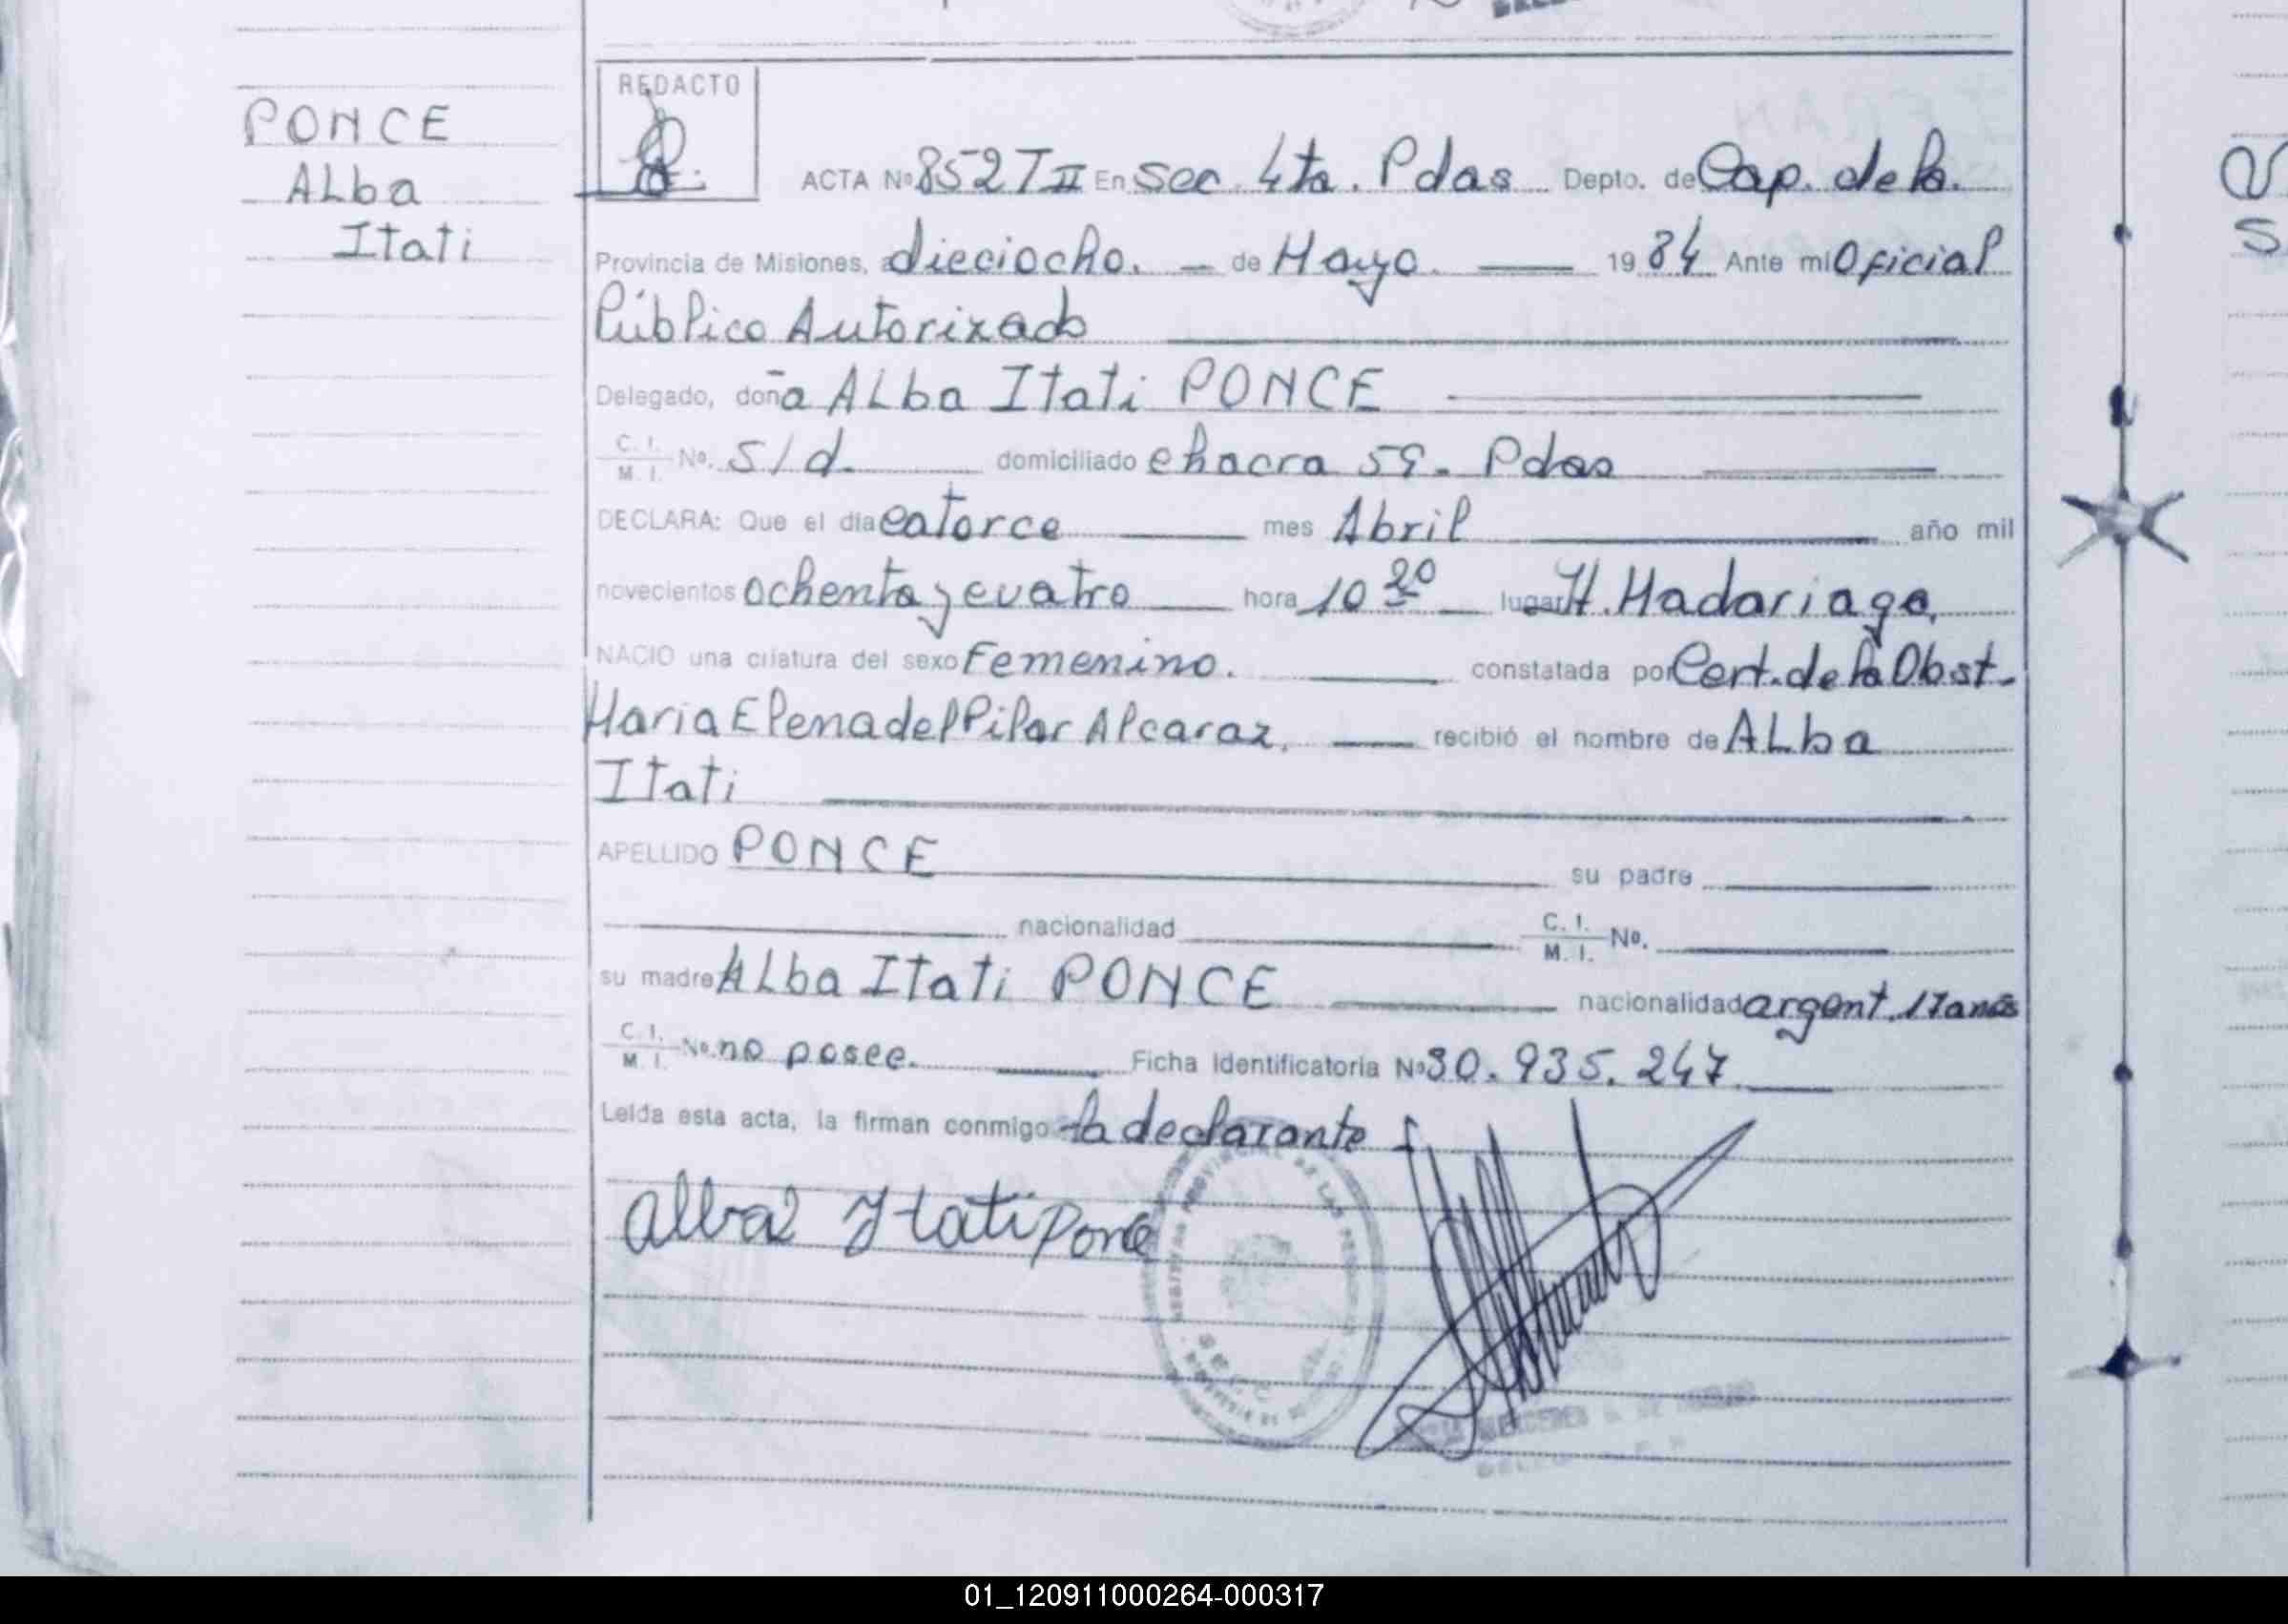 PONCE
ALba
Itati
REDACTO
ACTA Nº 852 T II En Sec. 4ta. Pdas Depto. de Cap. de la.
Provincia de Misiones, dieciocho. — de Mayo. — 19 84 Ante mi Oficial
Público Autorizado
Delegado, doña ALba Itati PONCE
C. I.
M. I. Nº. S/d. domiciliado chacra 59. Pdas
DECLARA: Que el día catorce mes Abril año mil
novecientos ochenta y cuatro hora 10 20 lugar H. Madariaga,
NACIO una criatura del sexo Femenino. constatada por Cert. de la Obst.
Maria Elena del Pilar Alcaraz, recibió el nombre de ALba
Itati
APELLIDO PONCE su padre
nacionalidad C. I.
M. I. Nº.
su madre ALba Itati PONCE nacionalidad argent. 17 años
C. I.
M. I. Nº. no posee. Ficha Identificatoria Nº 30.935.247
Leida esta acta, la firman conmigo la declarante
alba Itati Ponce
01_120911000264-000317